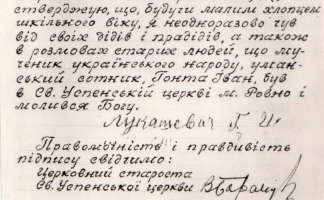 стверджую, що, будучи малим хлопцем
шкільного віку, я неодноразово чув
від своїх дідів і прадідів, а також
в розмовах старих людей, що му-
ченик українського народу, уман-
ський сотник, Гонта Іван, був
в Св. Успенській церкві м. Ровно і
молився Богу.
Лукашевич Г. И.
Правомочність і правдивість
підпису свідчимо:
Церковний староста
Св. Успенської церкви